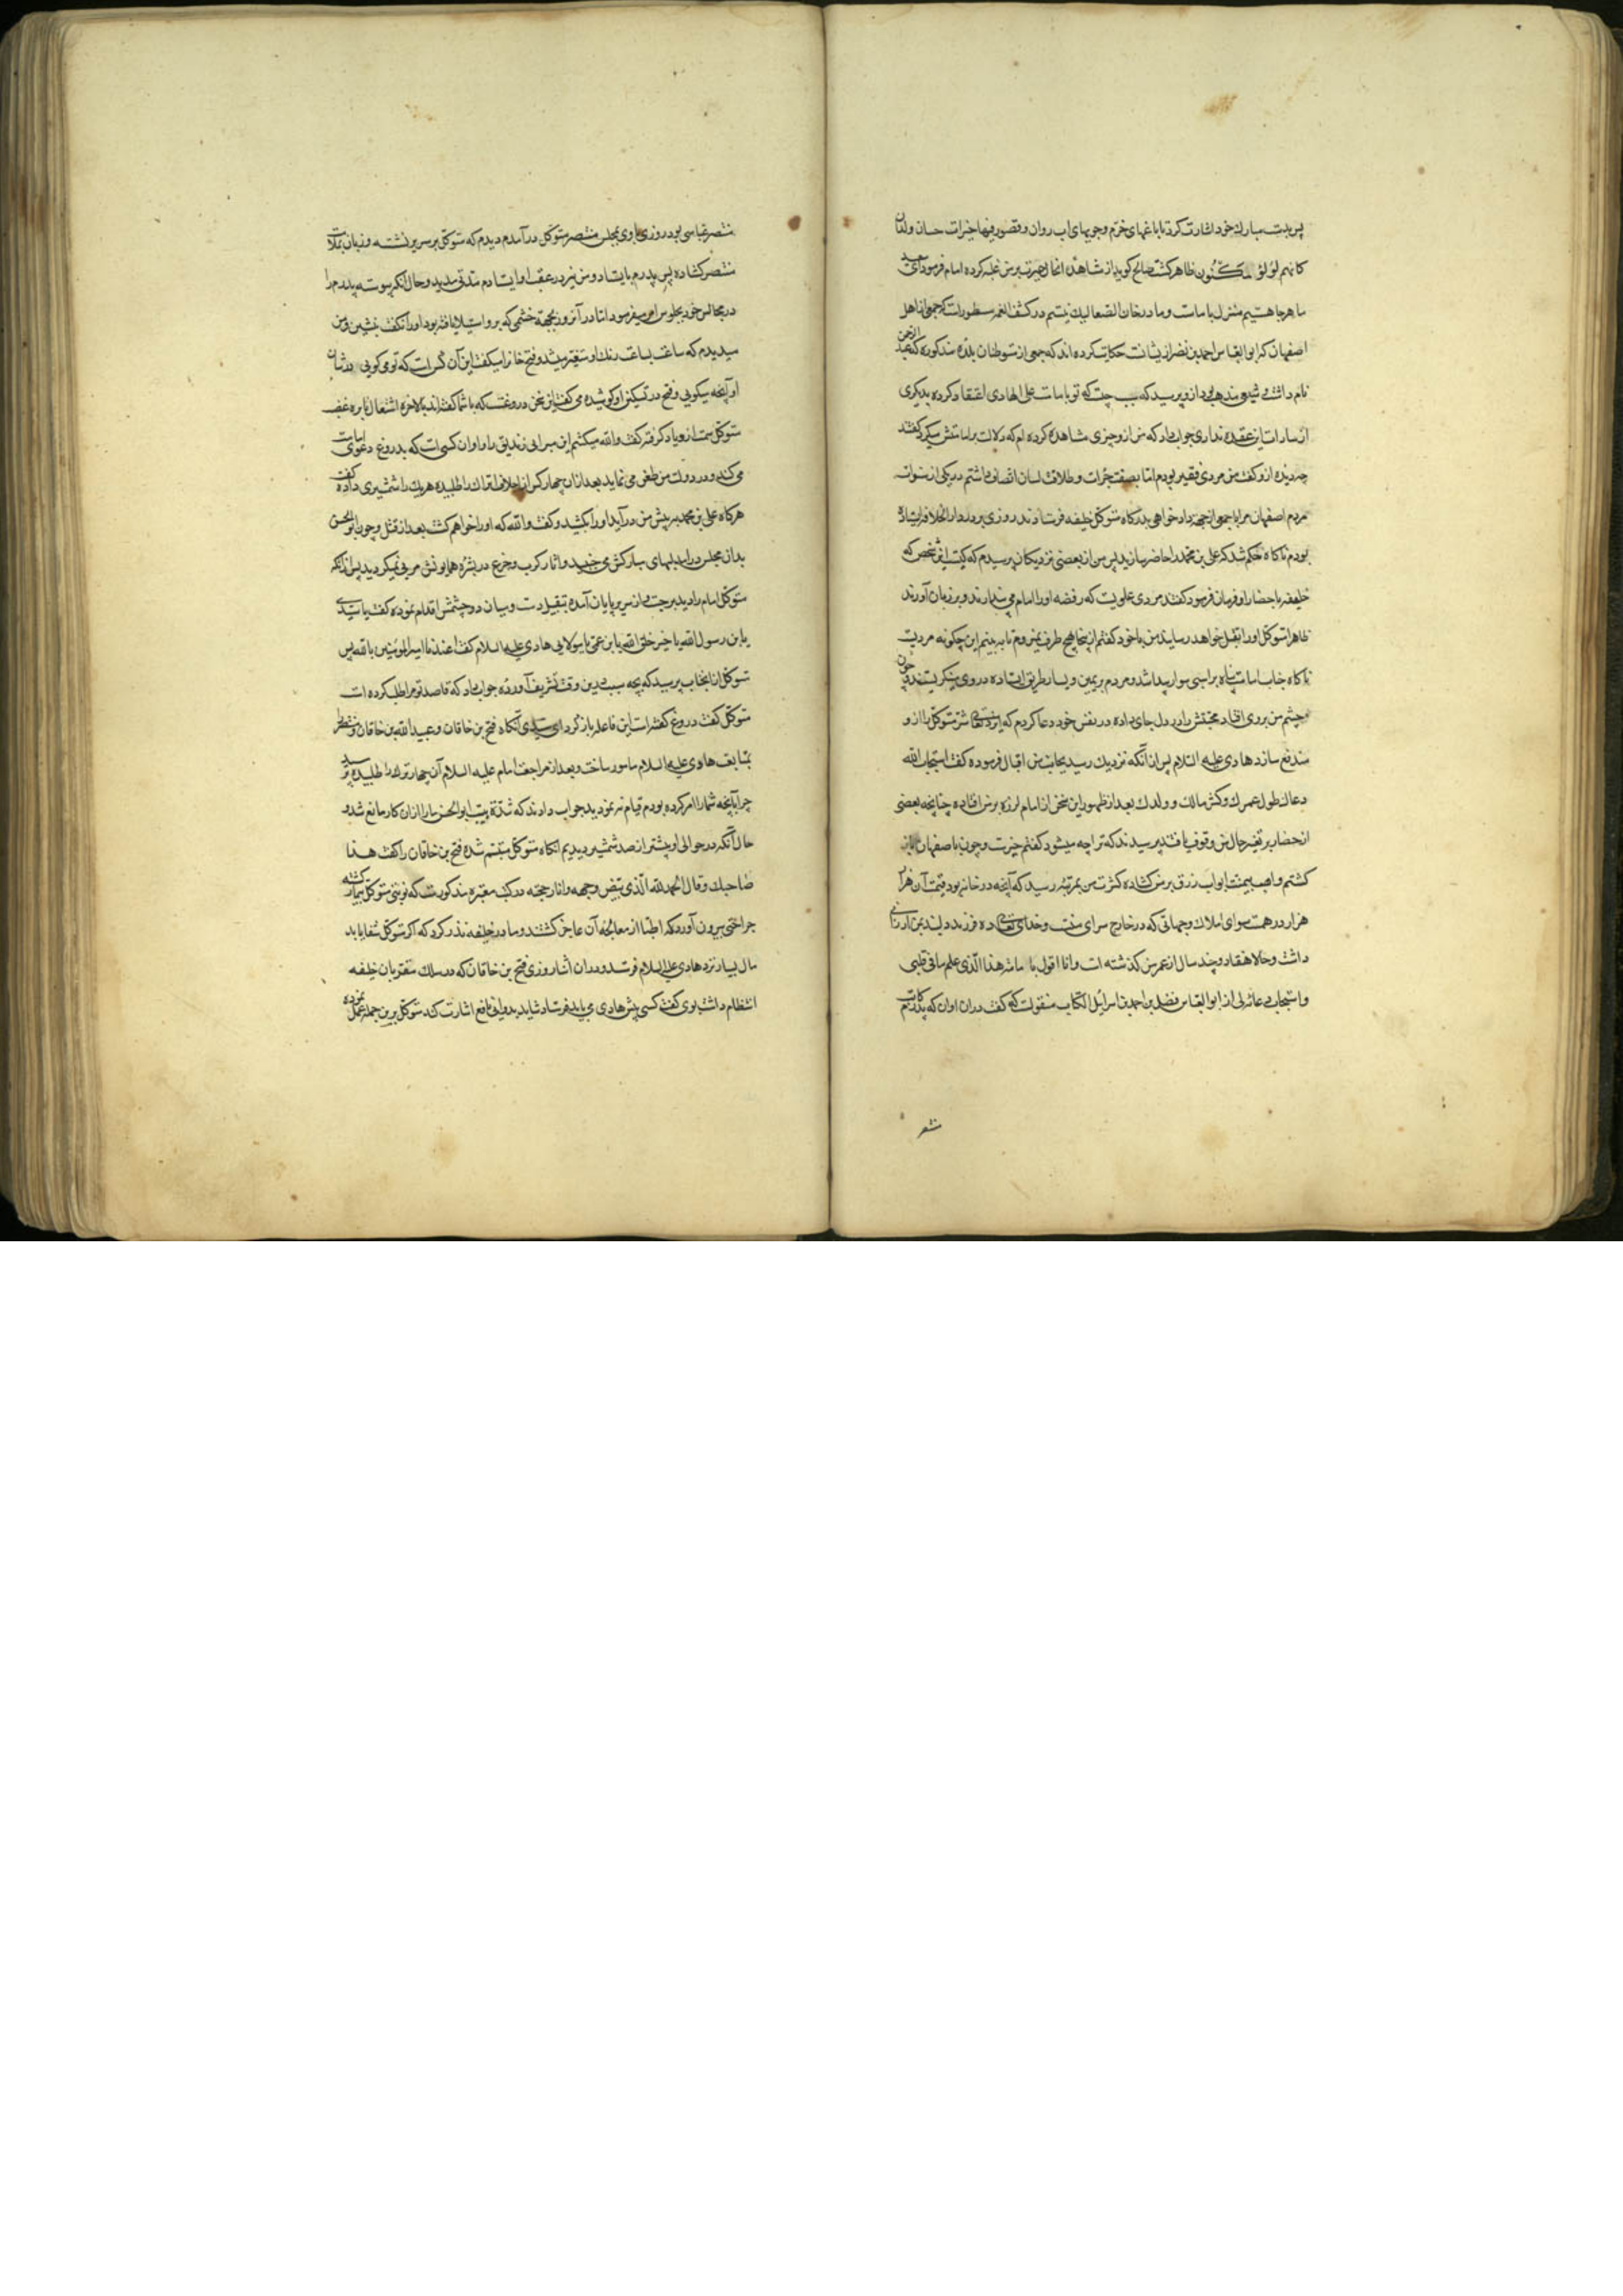 پس بدست مبارک خود اشارت کرد تا باغهای خرم و جویهای اب روان و قصور فیها خیرات حسان و ولدان
کانهم لؤلؤ مکنون ظاهر گشت صالح کوید از مشاهدهٔ انحال حیرت بر من غلبه کرده امام فرمود ای سعید
ما هر جا هستیم منزل با ماست و ما در خان الصعالیک نیستیم در کشف الغمه مسطورست که جمعی از اهل
اصفهان که ابو العباس احمد بن نضر ازیشانست حکایت کرده اند که جمعی از متوطنان بلدهٔ مذکوره که عبد الرحمن
نام داشت و شیعی مذهب بود ازو پرسید که سبب چیست که تو بامامت علی الهادی اعتقاد کرده بدیکری
از سادات این عقیده نداری جواب داد که من ازو چیزی مشاهده کرده ام که دلالت بر امامتش میکرد گفتند
چه دیدهٔ ازو گفت من مردی فقیر بودم اما بصفت جرات و طلاقت لسان اتصاف داشتم در یکی از سنوات
مردم اصفهان مرا با جمعی از جهة داد خواهی بدرکاه متوکل خلیفه فرستادند روزی بر در دار الخلافه ایستاده
بودم ناکاه حکم شد که علی بن محمد را حاضر سازید پس من از بعضی نزدیکان پرسیدم که کیست این شخص که
خلیفه باحضار او فرمان فرمود گفتند مردی علویست که رفضه اورا امام می پندارند و بر زبان آوردند
ظاهرا متوکل اورا بقتل خواهد رسانید من با خود گفتم از اینجا بهیچ طرف نمیروم تا به بینم این چکونه مردیست
ناکاه جناب امامت پناه بر اسبی سوار پیدا شد و مردم بر یمین و یسار طریق ایستاده در وی مینکریستند و چون
چشم من بر وی افتاد محبتش را در دل جای داده در نفس خود دعا کردم که ایزد تعالی شر متوکل را ازو
مندفع سازد هادی علیه السلام پس از انکه نزدیک رسید بجانب من اقبال فرموده گفت استجاب الله
دعاک طول عمرک و کثر مالک و ولدک بعد از ظهور این سخن از امام لرزه بر من افتاده چنانچه بعضی
از حضار بر تغیر حال من وقوف یافتند پرسیدند که ترا چه میشود گفتم خیرست و چون باصفهان باز
کشتم واهب بیمنت ابواب رزق بر من کشاده کثرت من بمرتبه رسید که آنچه در خانه بود قیمت آن هزار
هزار درهمست سوای املاک و جهاتی که در خارج سرای منست و خدای تعالی ده فرزند دلبند بمن ارزانی
داشت و حالا هفتاد و چند سال از عمر من کذشته است و انا اقول بامامة هذا الذی علم ما فی قلبی
و استجاب دعائه لی از ابو العباس فضل بن احمد بن اسرائیل الکاتب منقولست که گفت دران اوان که پدرم کاتب
منتصر
منتصر عباسی بود روزی با وی بمجلس منتصر متوکل در آمدم دیدم که متوکل بر سریر نشسته و زبان بملامت
منتصر کشاده پس پدرم بایستاد و من نیز در عقب او ایستادم مدتی مدید و حال آنکه پیوسته پدرم را
در مجالس خود بجلوس امر میفرمود اما در آنروز بجهة خشمی که بر و استیلا یافته بود اورا نکفت بنشین و من
میدیدم که ساعت بساعت رنک او متغیر میشد و فتح خانرا میکفت این آن کس است که تو می کویی در شان
او آنچه میکویی و فتح در تسکین او کوشیده می گفت این سخن دروغست که با شما گفته اند بالاخره اشتعال نایره غضب
متوکل سمت ازدیاد کرفته گفت والله میکشم این مرایی زندیق را و او ان کسی است که بدروغ دعوی امامت
می کند و در دولت من طعن می نماید بعد ازان چهار کس از اجلاف اتراک را طلبیده هریک را شمشیری داده گفت
هرکاه علی بن محمد پیش من در آید اورا بکشید و گفت والله که اورا خواهم کشت بعد از قتل و چون ابو الحسن
بدان مجلس در امد لبهای مبارکش می جنبید و اثار کرب و جزع در بشرهٔ همایونش مرئی نمیکردید پس ازانکه
متوکل امام را دید بر جست و از سریر پایان آمده بتقبیل دست و میان دو چشمش اقدام نموده گفت یا سیدی
یا بن رسول الله یا خیر خلق الله یا بن عمی یا مولایی هادی علیه السلام گفت اعیذک یا امیر المؤمنین بالله پس
متوکل از انجناب پرسید که بچه سبب درین وقت تشریف آوردهٔ جواب داد که قاصد تو مرا طلب کرده است
متوکل گفت دروغ گفته است این فاعله باز کرد ای سیدی آنکاه فتح بن خاقان و عبید الله بن خاقان و منتصر را
بمشایعت هادی علیه السلام مامور ساخت و بعد از مراجعت امام علیه السلام آن چهار ترک را طلبیده پرسید
چرا بآنچه شما را امر کرده بودم قیام ننمودید جواب دادند که شدة هیبت ابو الحسن ما را ازان کار مانع شد و
حال آنکه در حوالی او بیشتر از صد شمشیر دیدیم انکاه متوکل متبسم شده فتح بن خاقان را گفت هذا
صاحبک و قال الحمد لله الذی بیض وجهه و انار حجته در کتب معتبره مذکورست که نوبتی متوکل بیمار گشته
جراحتی بیرون آورد که اطبا از معالجهٔ آن عاجز کشتند و مادر خلیفه نذر کرد که اکر متوکل شفا یابد
مال بسیار نزد هادی علیه السلام فرستد و دران اثنا روزی فتح بن خاقان که در سلک مقربان خلیفه
انتظام داشت بوی گفت کسی پیش هادی می باید فرستاد شاید بدوائی نافع اشارت کند متوکل برین جمله عمل نموده